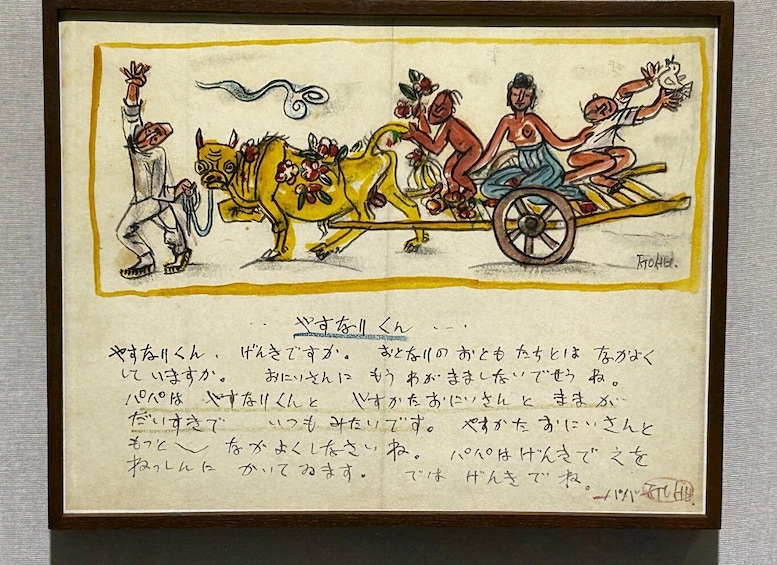 ㅈㅜㅇㅅㅓㅂ.
やすなりくん
やすなりくん、げんきですか。おとなりのおともたちとは なかよく
していますか。おにいさんに もうわがまましないでせうね。
パパは やすなりくんと やすかたおにいさんと ままが
だいすきで いつも みたいです。やすかたおにいさんと
もっと〱 なかよくしなさいね。パパはげんきで ゑを
ねっしんに かいてゐます。では げんきでね。
パパ ㅈㅜㅇㅅㅓㅂ.